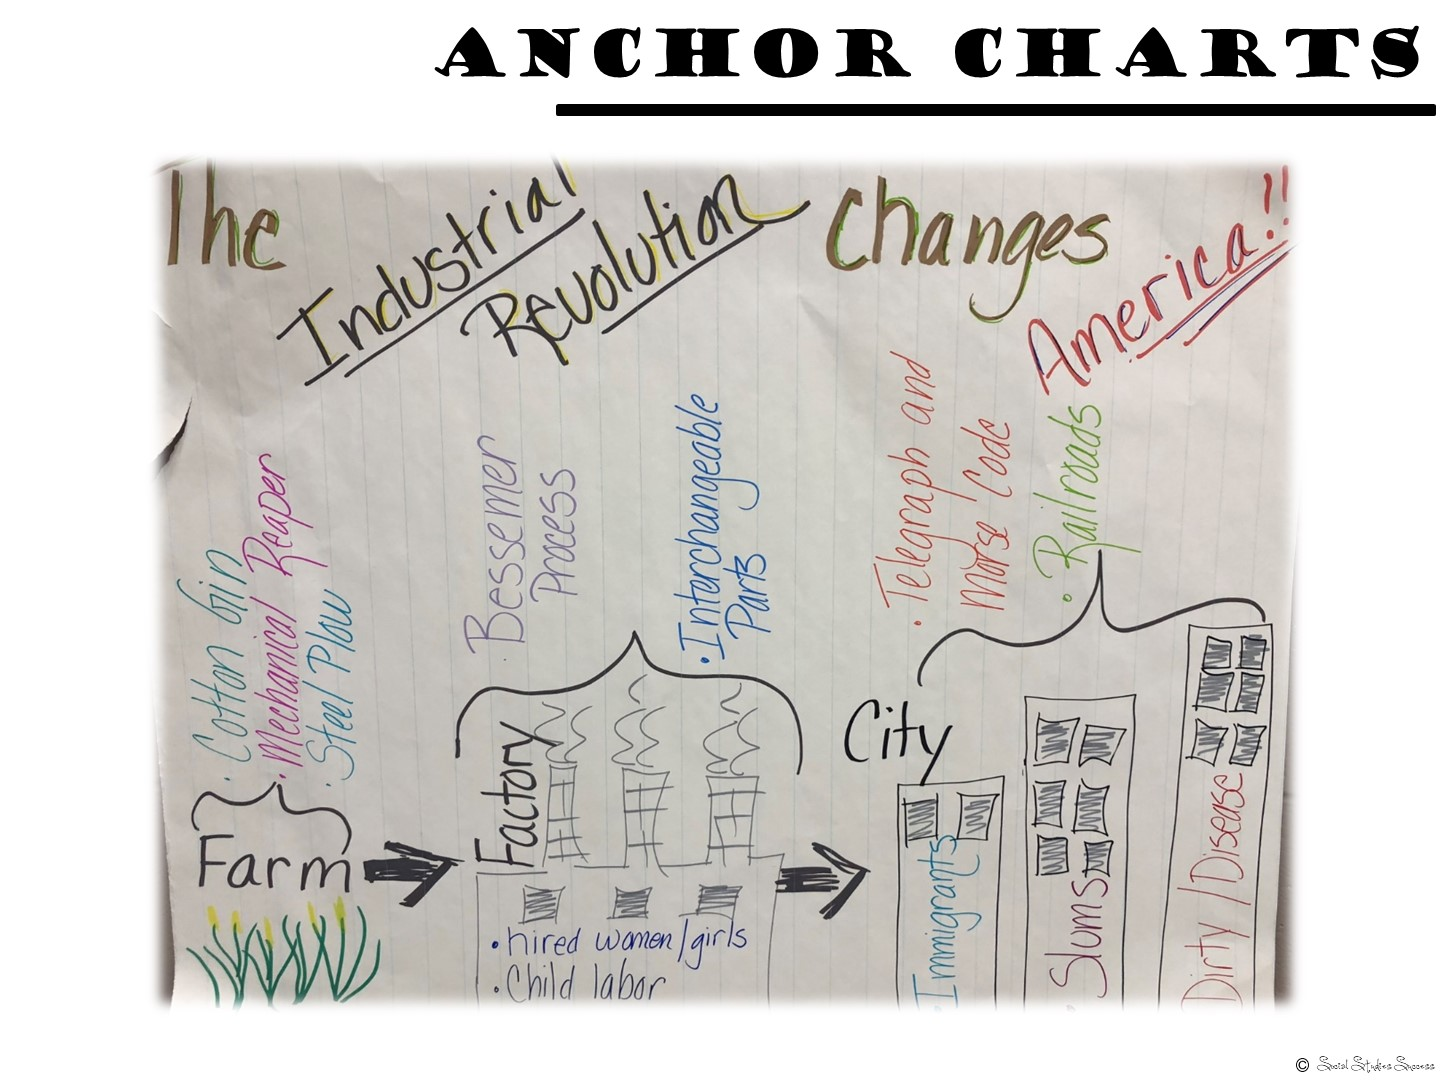 ANCHOR CHARTS
The Industrial Revolution Changes America!!
• Cotton Gin
• Mechanical Reaper
• Steel Plow
Farm
• Bessemer
Process
• Interchangeable
Parts
Factory
• hired women/girls
• Child labor
• Telegraph and
Morse Code
• Railroads
City
• Immigrants
• Slums
Dirty/Disease
© Social Studies Success